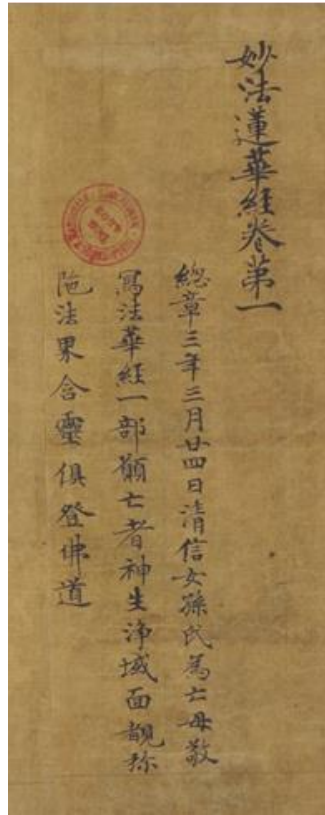 妙法蓮華經卷第一
總章三年三月廿四日清信女孫氏為亡母敬
寫法華經一部願亡者神生淨域面覩弥
陁法界含靈俱登佛道